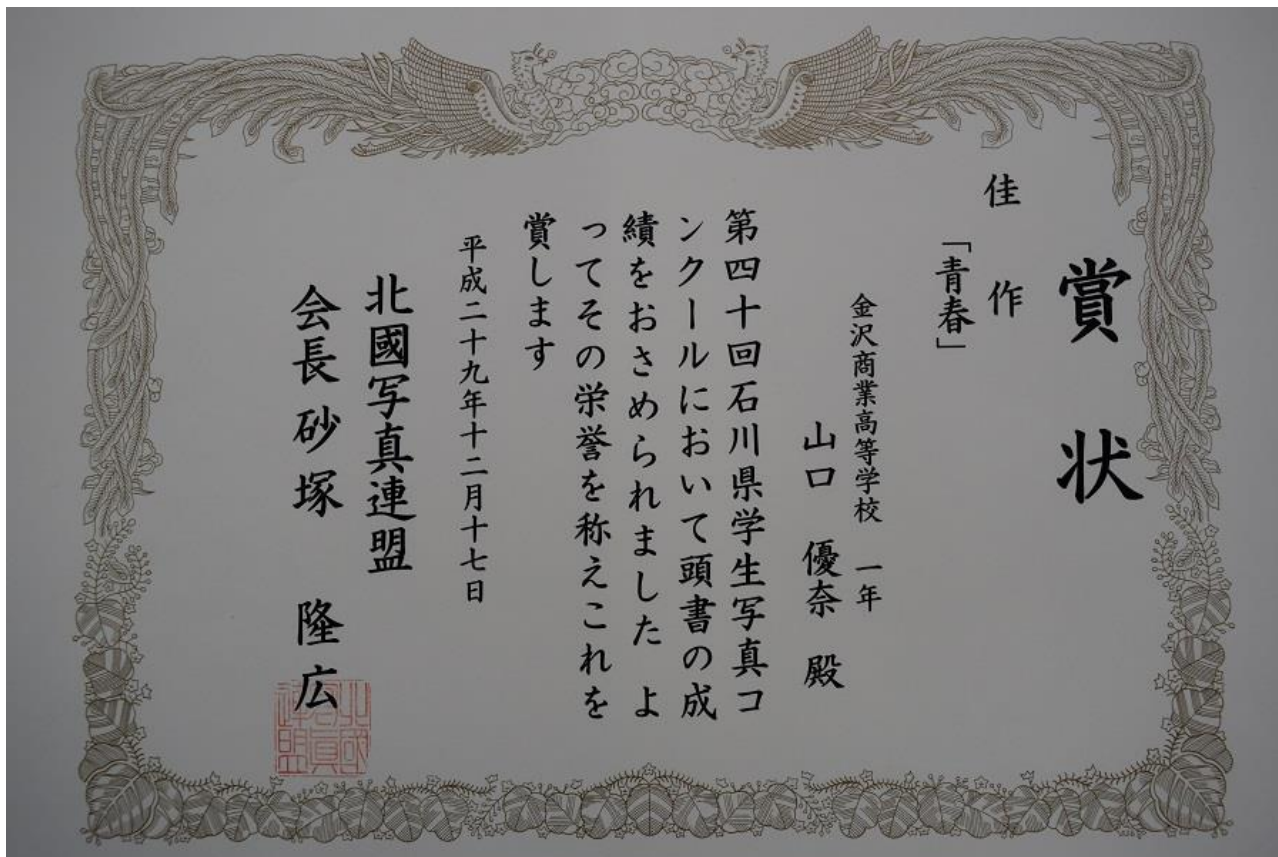 賞状
佳作
「青春」
金沢商業高等学校 一年
山口 優奈 殿
第四十回石川県学生写真コ
ンクールにおいて頭書の成
績をおさめられました よ
ってその栄誉を称えこれを
賞します
平成二十九年十二月十七日
北國写真連盟
会長 砂塚 隆広
北國
寫眞
連盟